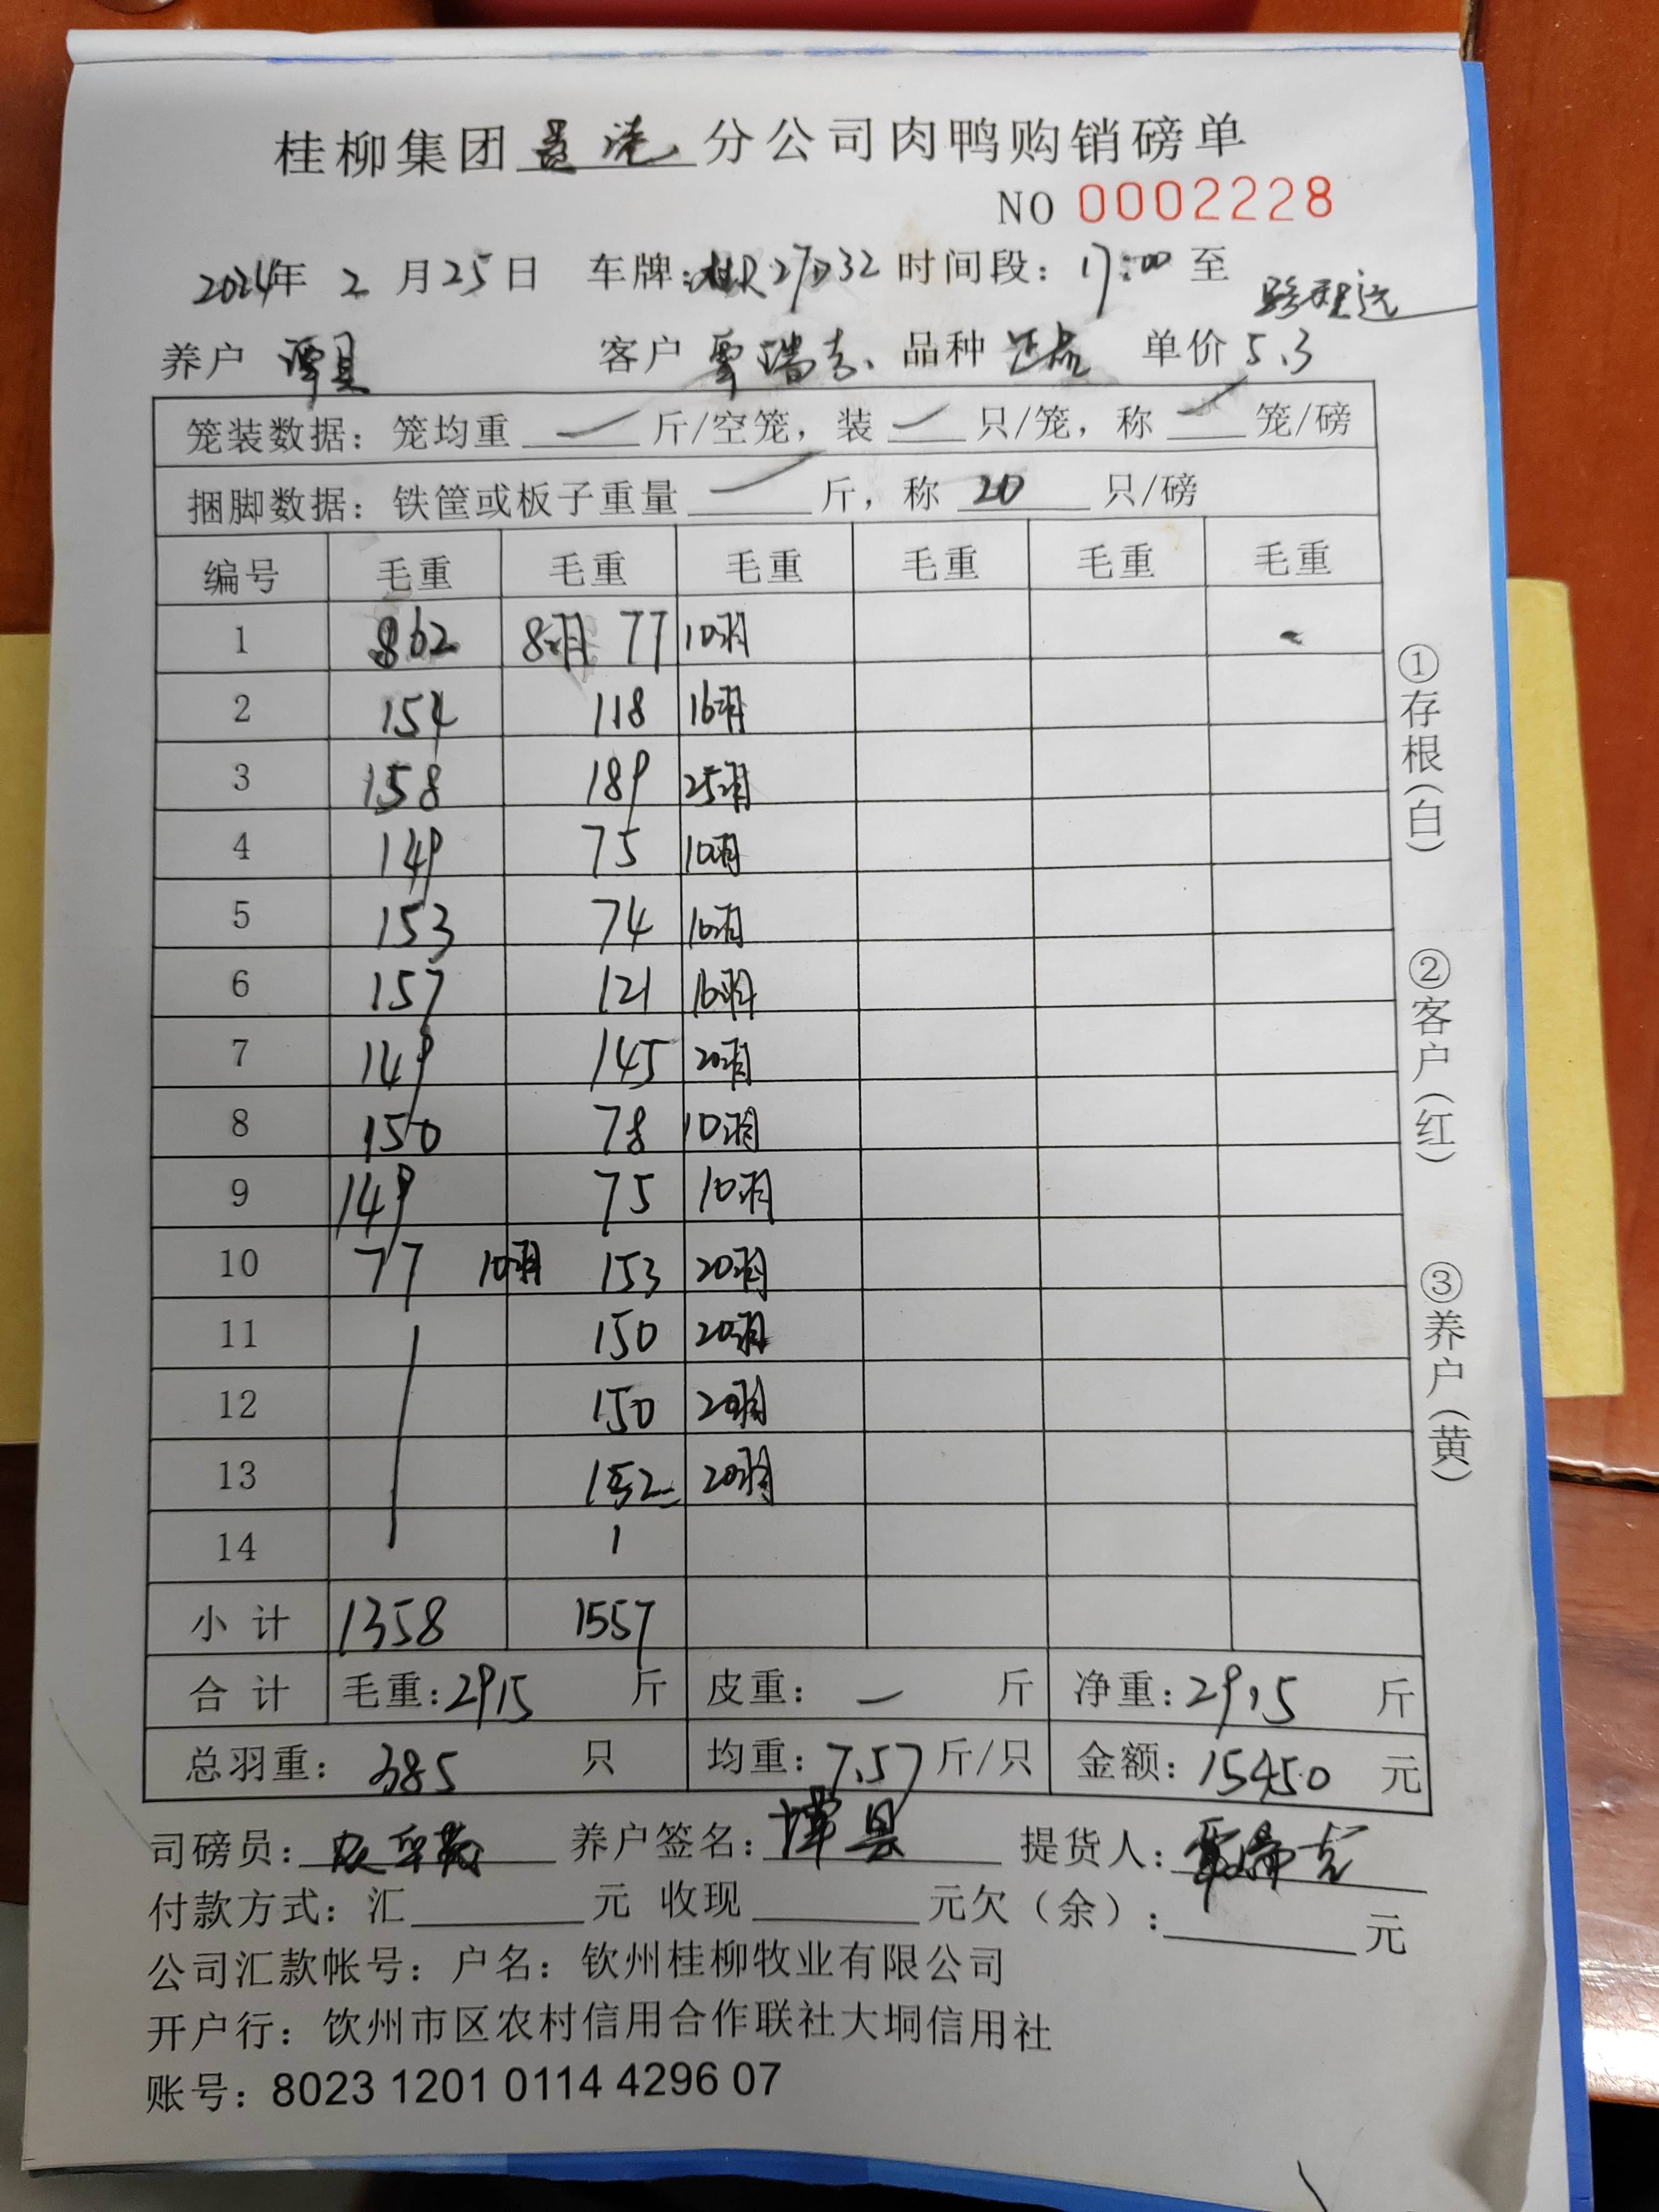 桂柳集团贵港分公司肉鸭购销磅单
NO 0002228
2024年 2月25日 车牌: 27D32 时间段: 17:00 至
养户 谭县 客户 覃瑞吉 品种 单价 5.3
笼装数据: 笼均重 — 斤/空笼, 装 — 只/笼, 称 — 笼/磅
捆脚数据: 铁筐或板子重量 — 斤, 称 20 只/磅
编号 毛重 毛重 毛重 毛重 毛重 毛重
1 862 8羽 77 10羽
2 154 118 16羽
3 158 189 25羽
4 149 75 10羽
5 153 74 10羽
6 157 121 16羽
7 149 145 20羽
8 150 78 10羽
9 149 75 10羽
10 77 10羽 153 20羽
11 150 20羽
12 150 20羽
13 152 20羽
14
小计 1358 1557
合计 毛重: 2915 斤 皮重: — 斤 净重: 2915 斤
总羽重: 385 只 均重: 7.57 斤/只 金额: 15450 元
司磅员: 养户签名: 谭县 提货人: 覃瑞吉
付款方式: 汇 元 收现 元欠(余): 元
公司汇款帐号: 户名: 钦州桂柳牧业有限公司
开户行: 饮州市区农村信用合作联社大垌信用社
账号: 8023 1201 0114 4296 07
①存根(白)
②客户(红)
③养户(黄)